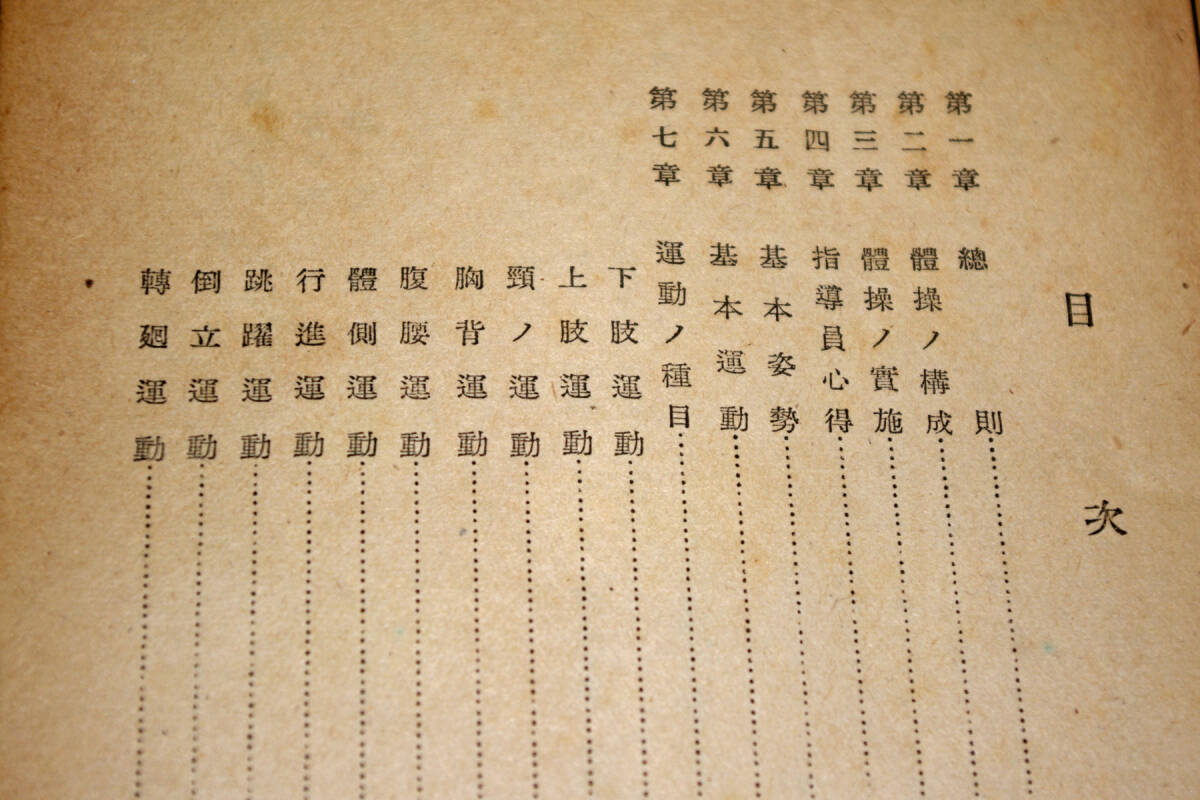 目次
第一章 總則
第二章 體操ノ構成
第三章 體操ノ實施
第四章 指導員心得
第五章 基本姿勢
第六章 基本運動
第七章 運動ノ種目
下肢運動
上肢運動
頸ノ運動
胸背運動
腹腰運動
體側運動
行進運動
跳躍運動
倒立運動
轉廻運動